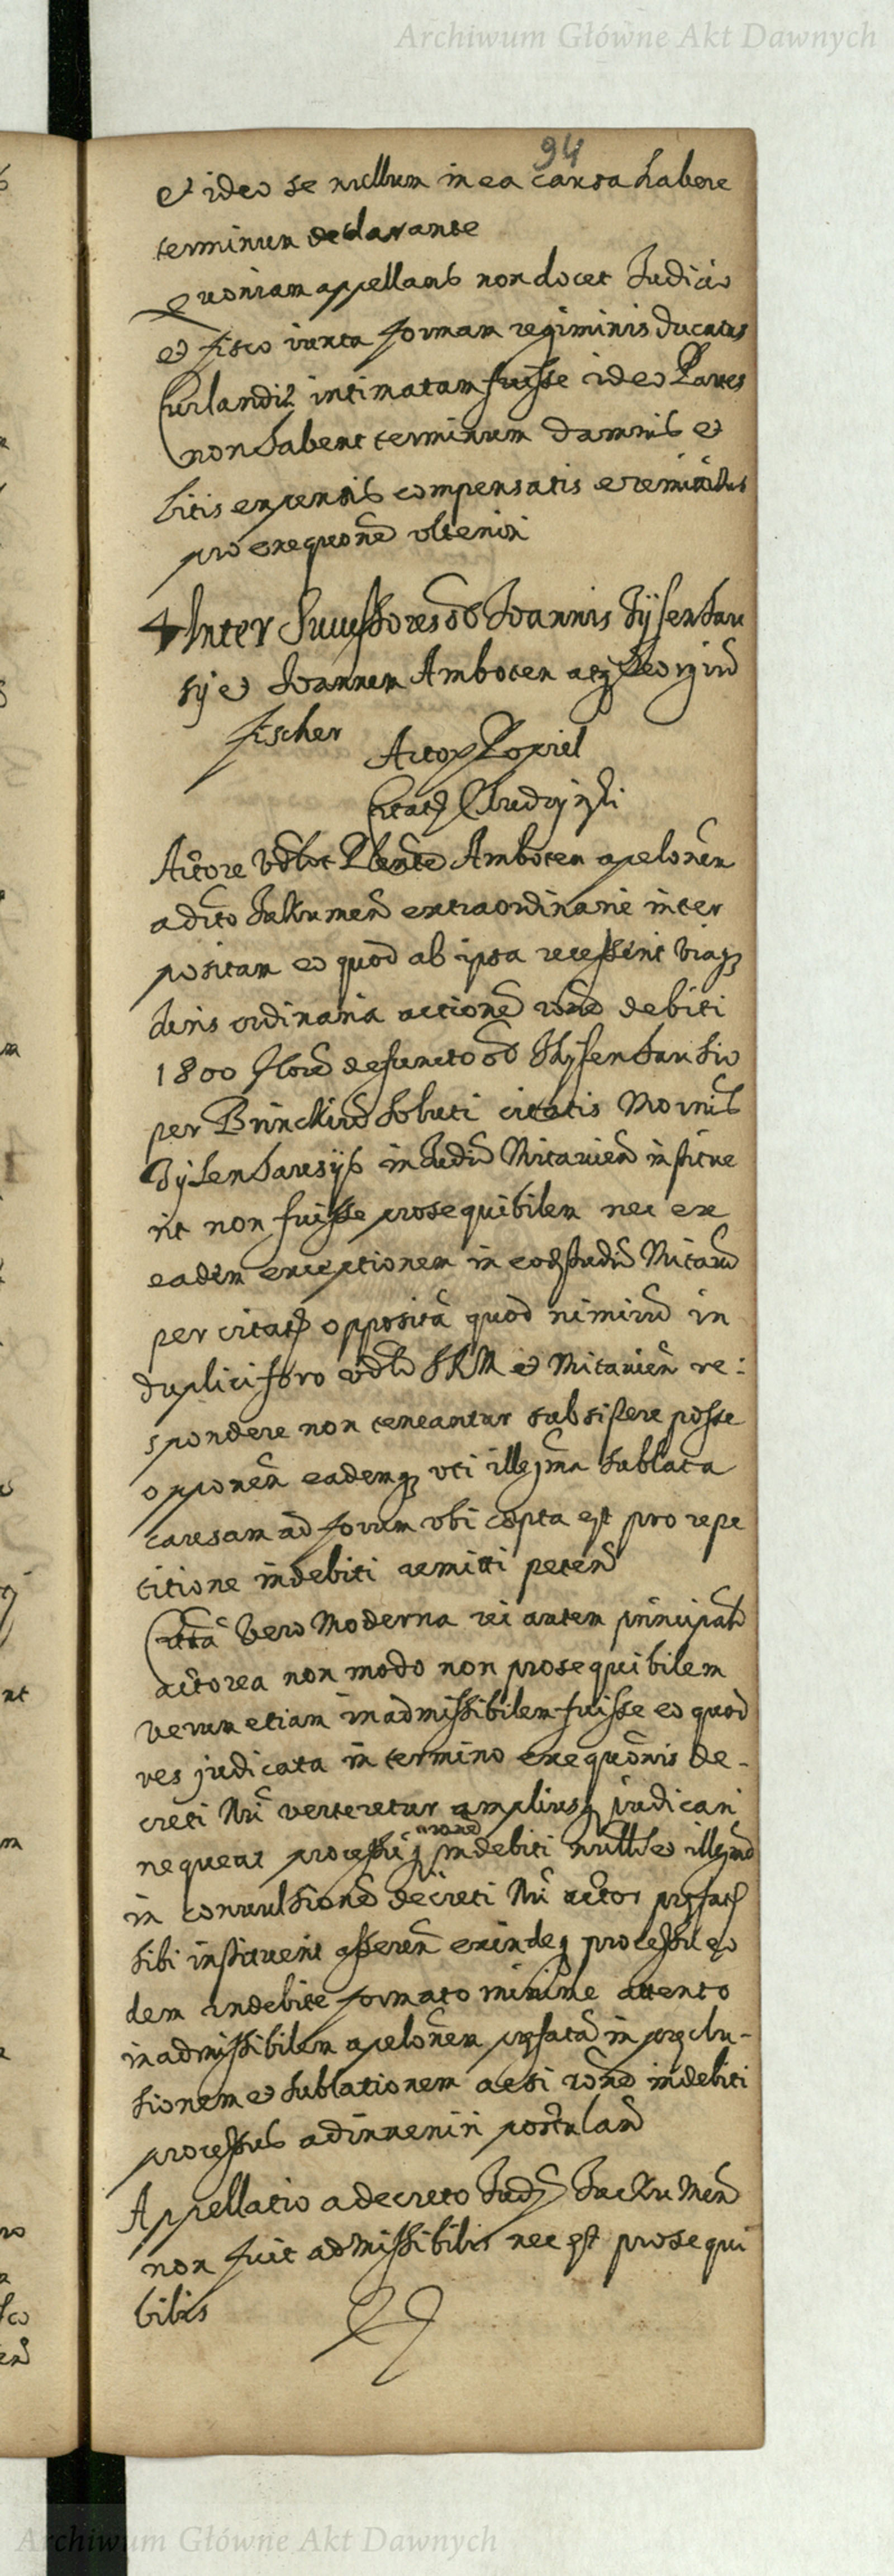 Archiwum Główne Akt Dawnych
94
et ideo se nullum in ea causa habere
terminum declarante
Quoniam appellans non docet Judicio
et fisco iuxta formam regiminis Ducatus
Curlandiæ intimatam fuisse ideo Partes
non habent terminum damnis et
litis expensis compensatis et remittitur
pro exequone ulteriori
4 Inter Successores Joannis Tysenhau
sy et Joannem Amboten atq Georgiu
Fischer
Actor Popiel
Citat Chudzynski
Actore Amboten apelonem
a dicto Tukumen extraordinarie inter
positam eo quod ab ipsa recesserit viaq
iuris ordinaria actione rone debiti
1800 flore defuncto Thysenhausio
per Brinckiu soluti citatis Modernis
Tysenhausijs in Judi Mitaviens institue
rit non fuisse prosequibilem nec ex
eadem exceptionem in eod Judi Mitavi
per citat opposita quod nimiru in
duplici foro SRM et Mitavien re:
spondere non teneantur subsistere posse
opponen eademq uti illegma sublata
causam ad forum ubi cœpta est pro repe
titione indebiti remitti peten
Citata vero Moderna rei autem principali
actorea non modo non prosequibilem
verum etiam inadmissibilem fuisse eo quod
res judicata in termino exequonis de-
creti Nri verteretur ampliusq judicari
nequeat processuq rone indebiti nullr et illegme
in convulsione decreti Nri actor præfat
sibi instituerit asseren exindeq processu eo
dem indebite formato minime attento
inadmissibilem apelonem præfata in præclu-
sionem et sublationem acti rone indebiti
processus adinveniri postulan
Appellatio a decreto Judy Tuckumen
non fuit admissibilis nec est prosequi
bilis
Archiwum Główne Akt Dawnych